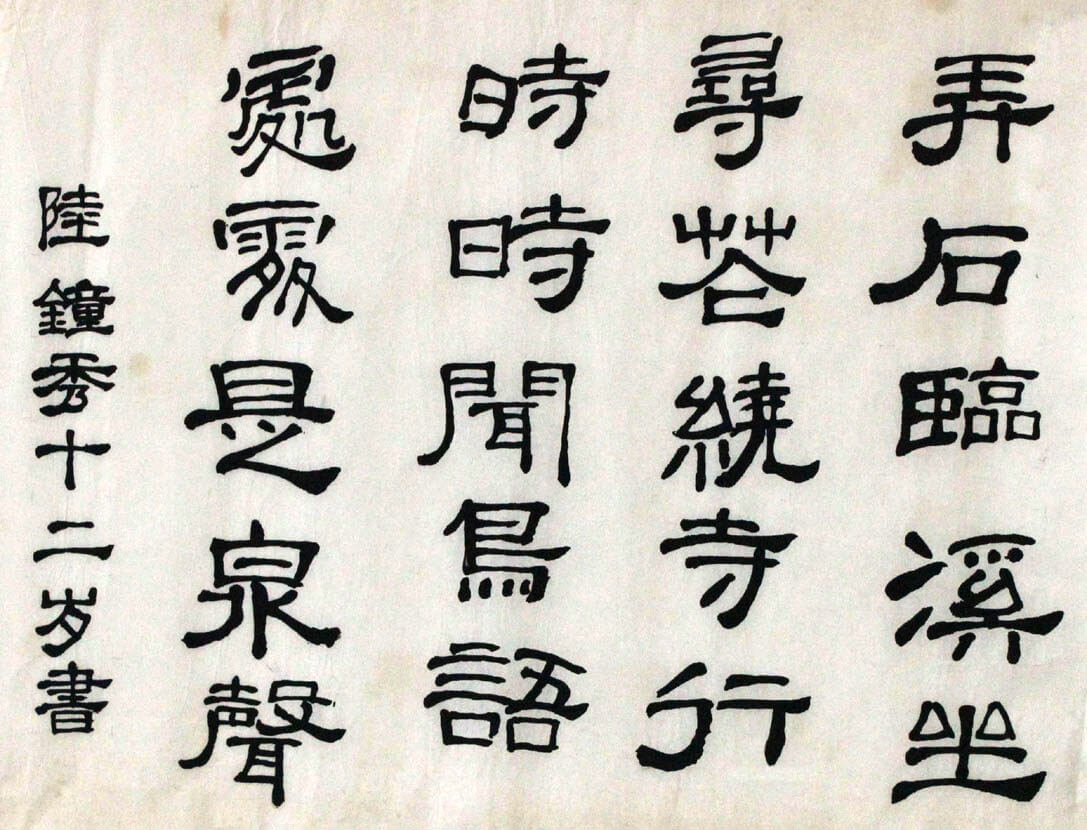 弄石臨溪坐
尋花繞寺行
時時聞鳥語
處處是泉聲
陸鐘秀十二岁書